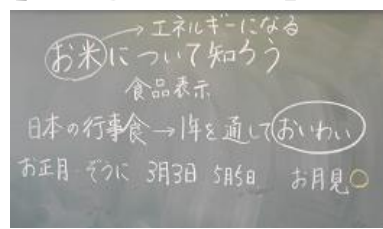 →エネルギーになる
お米について知ろう
食品表示
日本の行事食→1年を通しておいわい
お正月 ぞうに 3月3日 5月5日 お月見